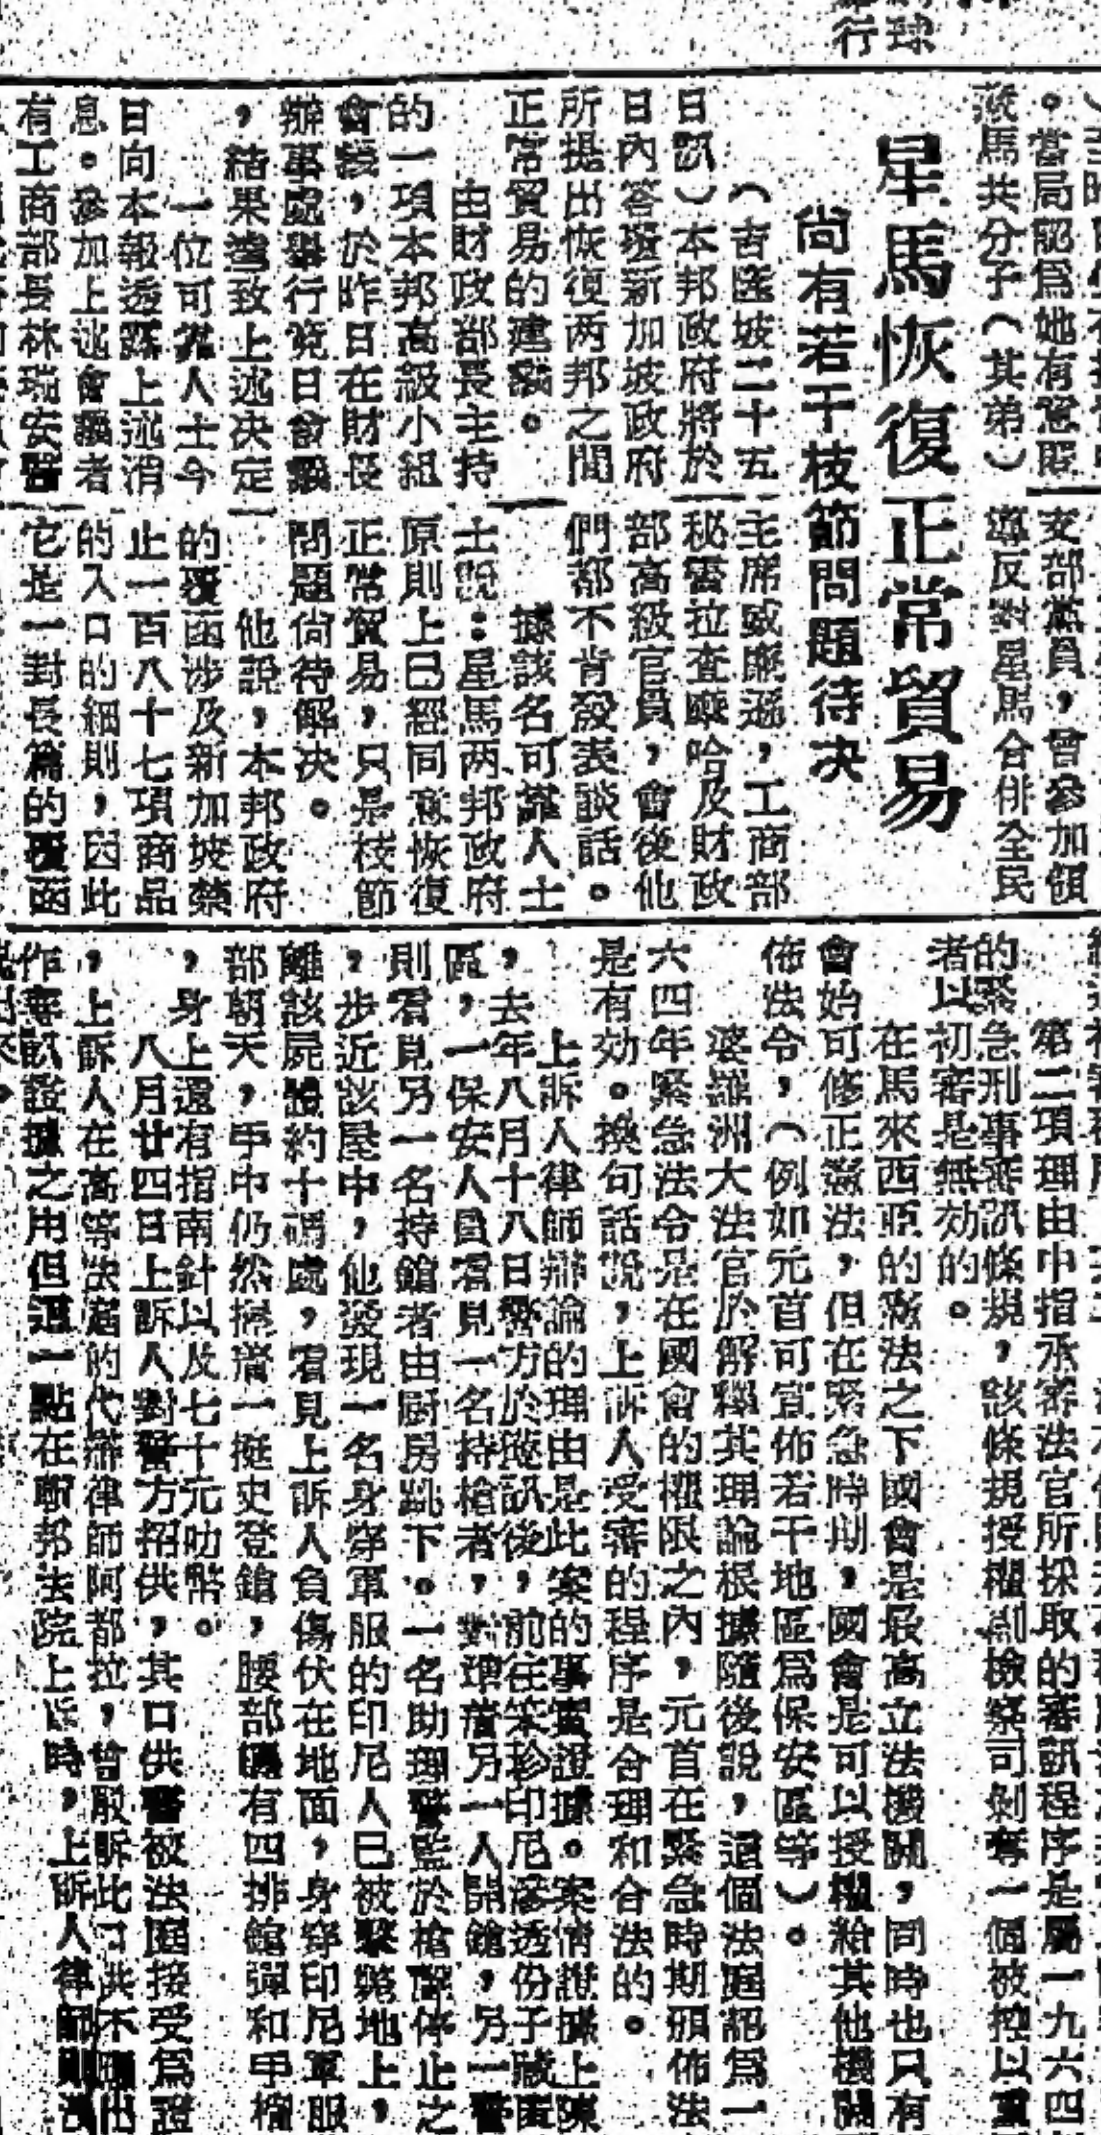 球
行
。當局認爲她有意
馬共分子(其弟)
支部黨員,曾參加領
導反對星馬合併全民
星馬恢復正常貿易
尚有若干枝節問題待决
(吉隆坡二十五
日訊)本邦政府將於
日內答覆新加坡政府
所提出恢復两邦之間
正常貿易的建議。
由財政部長主持
的一項本邦高級小組
會議,於昨日在財長
辦事處舉行竟日會議
,結果達致上述决定
一位可靠人士今
日向本報透露上述消
息。參加上述會議者
有工商部長林瑞安醫
主席,工商部
秘書拉查哈及財政
部高級官員,會後他
們都不肯發表談話。
據該名可靠人士
士說:星馬两邦政府
原則上已經同意恢復
正常貿易,只是枝節
問題尚待解决。
他說,本邦政府
的覆函涉及新加坡禁
止一百八十七項商品
的入口的細則,因此
它是一對長篇的覆函
第二項理由中指承審法官所採取的審訊程序是屬一九六四
的緊急刑事審訊條規,該條規授權副檢察司剝奪一個被控以
者以初審是無効的。
在馬來西亞的憲法之下國會是最高立法機關,同時也只有
會始可修正憲法,但在緊急時期,國會是可以授權給其他機關
佈法令,(例如元首可宣佈若干地區爲保安區等)。
婆羅洲大法官於解釋其理論根據隨後說,這個法庭認爲一
六四年緊急法令是在國會的權限之內,元首在緊急時期頒佈法
是有効。換句話說,上訴人受審的程序是合理和合法的。
上訴人律師辯論的理由是此案的事實證據。案情證據上陳
,去年八月十八日警方於訊後,前往笨珍印尼滲透份子藏匿
區,一保安人員看見一名持槍者,對準着另一人開鎗,另一警
則看見另一名持鎗者由厨房跳下。一名助理警監於槍聲停止之
,步近該屋中,他發現一名身穿軍服的印尼人已被擊斃地上,
離該屍體約十碼處,看見上訴人負傷伏在地面,身穿印尼軍服
部朝天,手中仍然握着一挺史登鎗,腰部有四排鎗彈和手榴
,身上還有指南針以及七十元叻幣。
八月廿四日上訴人對警方招供,其口供書被法庭接受爲證
,上訴人在高等法庭的代辯律師阿都拉,曾駁訴此口供不
作專訊證據之用但這一點在聯邦法院上訴時,上訴人律師